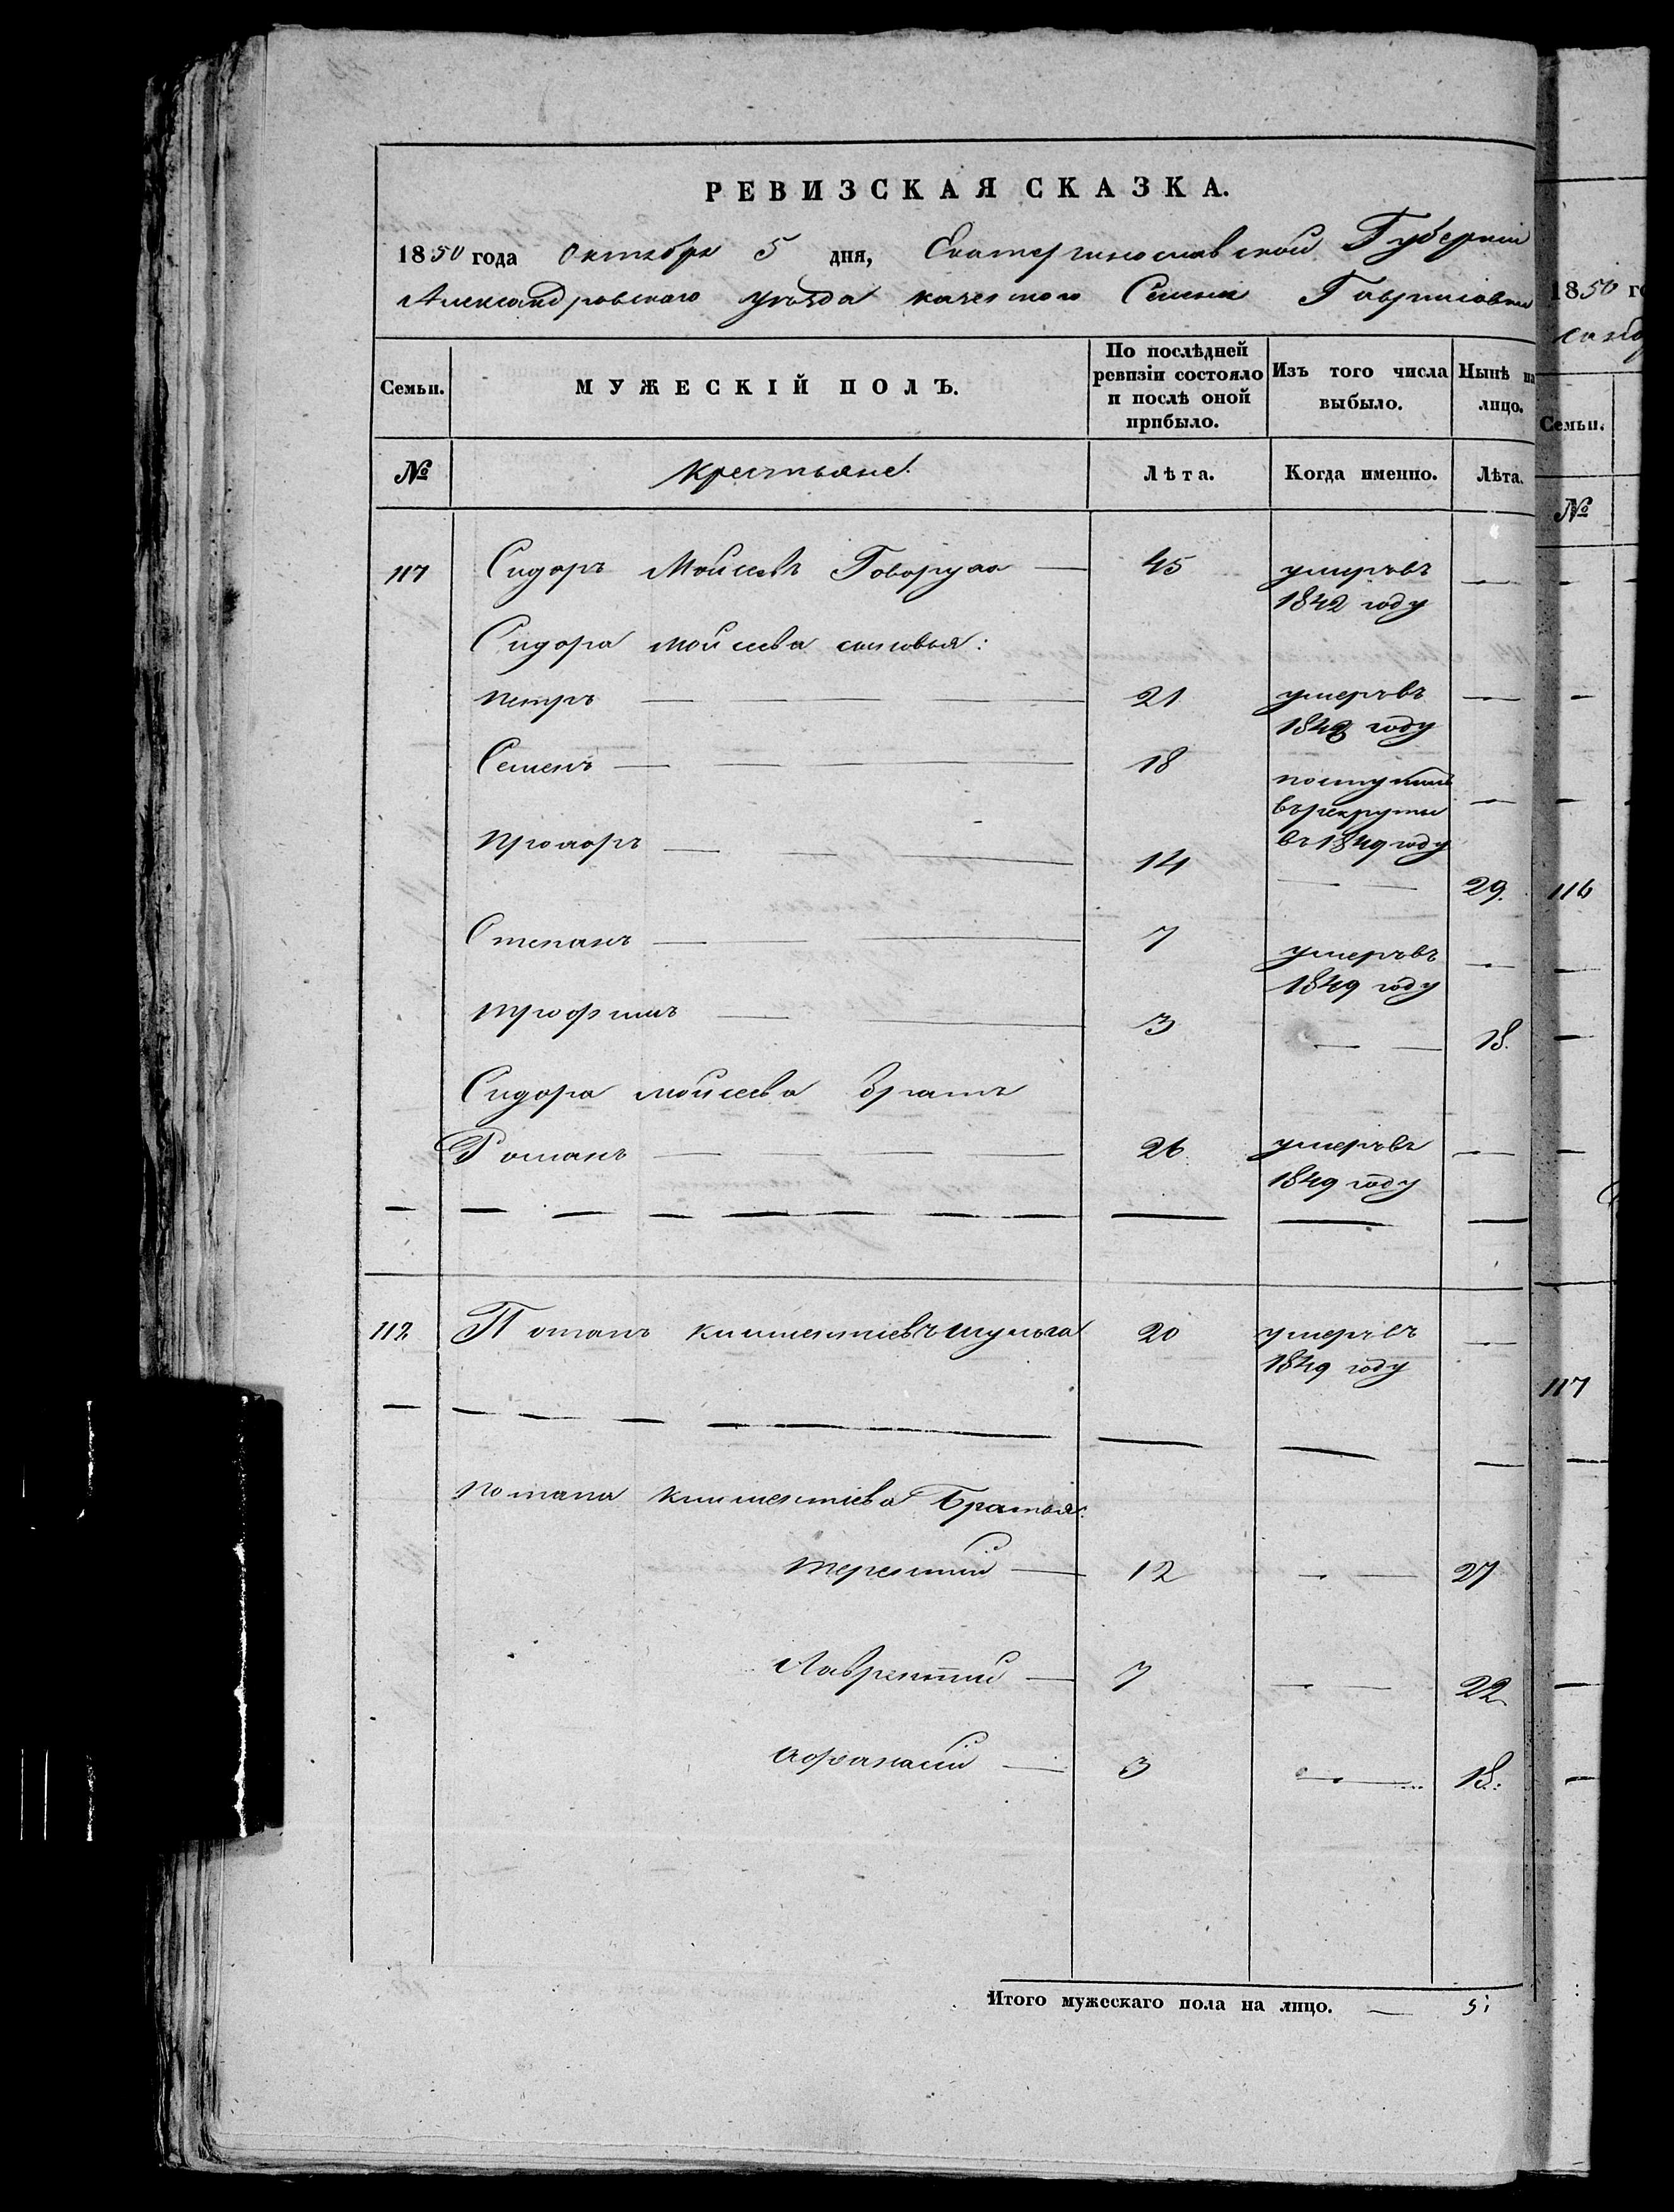 РЕВИЗСКАЯ СКАЗКА.
1850 года октября 5 дня, Екатеринославской Губерніи
Александровскаго уѣзда казенного Селенія Гавриловки
Семьи. МУЖЕСКІЙ ПОЛЪ. По послѣдней ревизіи состояло и послѣ оной прибыло. Изъ того числа выбыло. Нынѣ на лицо.
№ Крестьяне. Лѣта. Когда именно. Лѣта.
Сидоръ Моисеевъ Говоруха — 45 умеръ въ —
1842 году
Сидора Моисеева сыновья:
Петръ — 21 умеръ въ —
году
Семенъ — 18 поступилъ
въ рекруты —
въ 1849 году
Прохоръ — 14 — 29.
Степанъ — 7 умеръ въ —
1849 году
Трофимъ — 3 — 18.
Сидора Моисеева братъ
Романъ — 26 умеръ въ —
1849 году
112 Потапъ Климентіевъ Шульга 20 умеръ въ —
1849 году
Потапа Климентіева Братья:
Терентій — 12 — 27
Лаврентій — 7 — 22
Афанасій — 3 — 18.
Итого мужескаго пола на лицо. — 5
1850 го
Семьи.
№
116
117